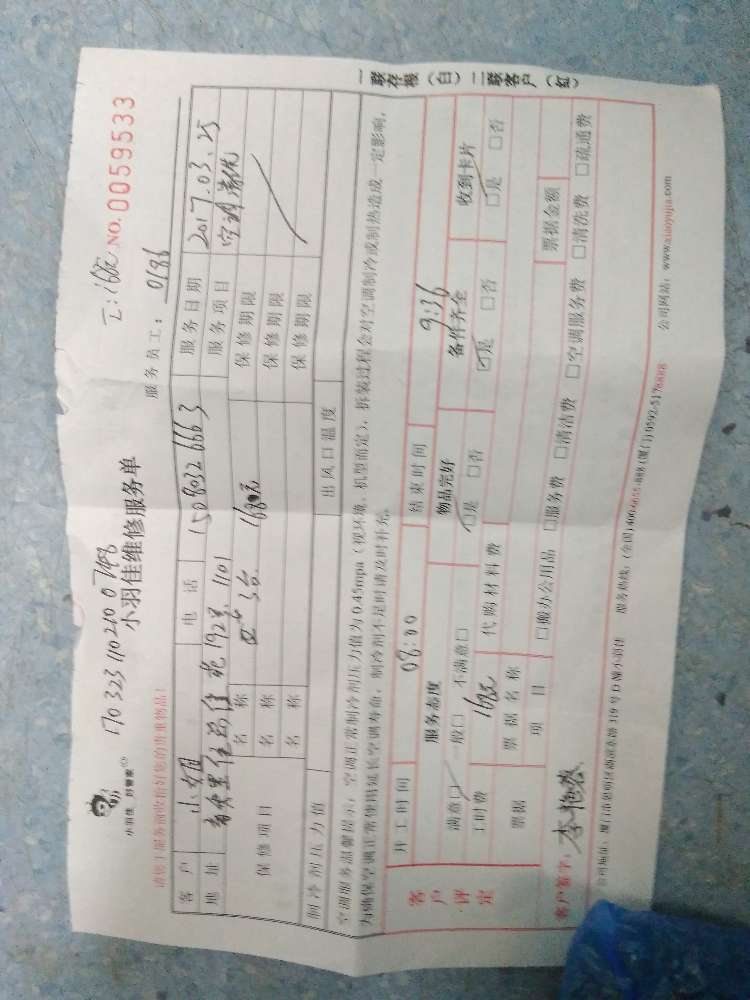 170323110210 0748
工:168元 NO.0059533
小羽佳 好管家
小羽佳维修服务单
服务员工: 0186
客户 小姐 电话 15080326663 服务日期 2017.03.25
地址 佳苑192号1101 服务项目 空调清洗
保修项目 名称 3台 168元 保修期限
名称 保修期限
名称 保修期限
制冷剂压力值 出风口温度
空调服务温馨提示:空调正常制冷剂压力值为0.45mpa(视环境、机型而定),拆装过程会对空调制冷或制热造成一定影响,
为确保空调正常使用延长空调寿命,制冷剂不足时请及时补充。
开工时间 08:00 结束时间 9:36
客户评定 服务态度 物品完好 备件齐全 收到卡片
满意□ 一般□ 不满意□ □是 □否 □是 □否 □是 □否
工时费 168元 代购材料费
票据 票据名称 票据金额
项目 □搬办公用品 □服务费 □清洁费 □空调服务费 □清洗费 □疏通费
客户签字:
公司地址:厦门市思明区 319号 小羽佳 服务热线:(全国)400-6655-888(厦门)0592-5178888 公司网站:www.xiaoyujia.com
一联存根(白)二联客户(红)